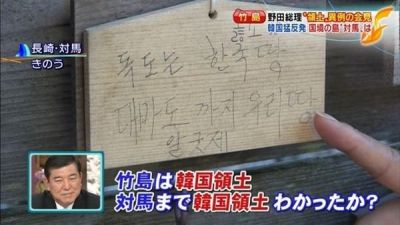 竹島
野田総理“領土”異例の会見
韓国猛反発 国境の島“対馬”は
長崎・対馬
きのう
독도는 한국땅
대마도 까지 우리땅
알긋제
竹島は韓国領土
対馬まで韓国領土 わかったか?